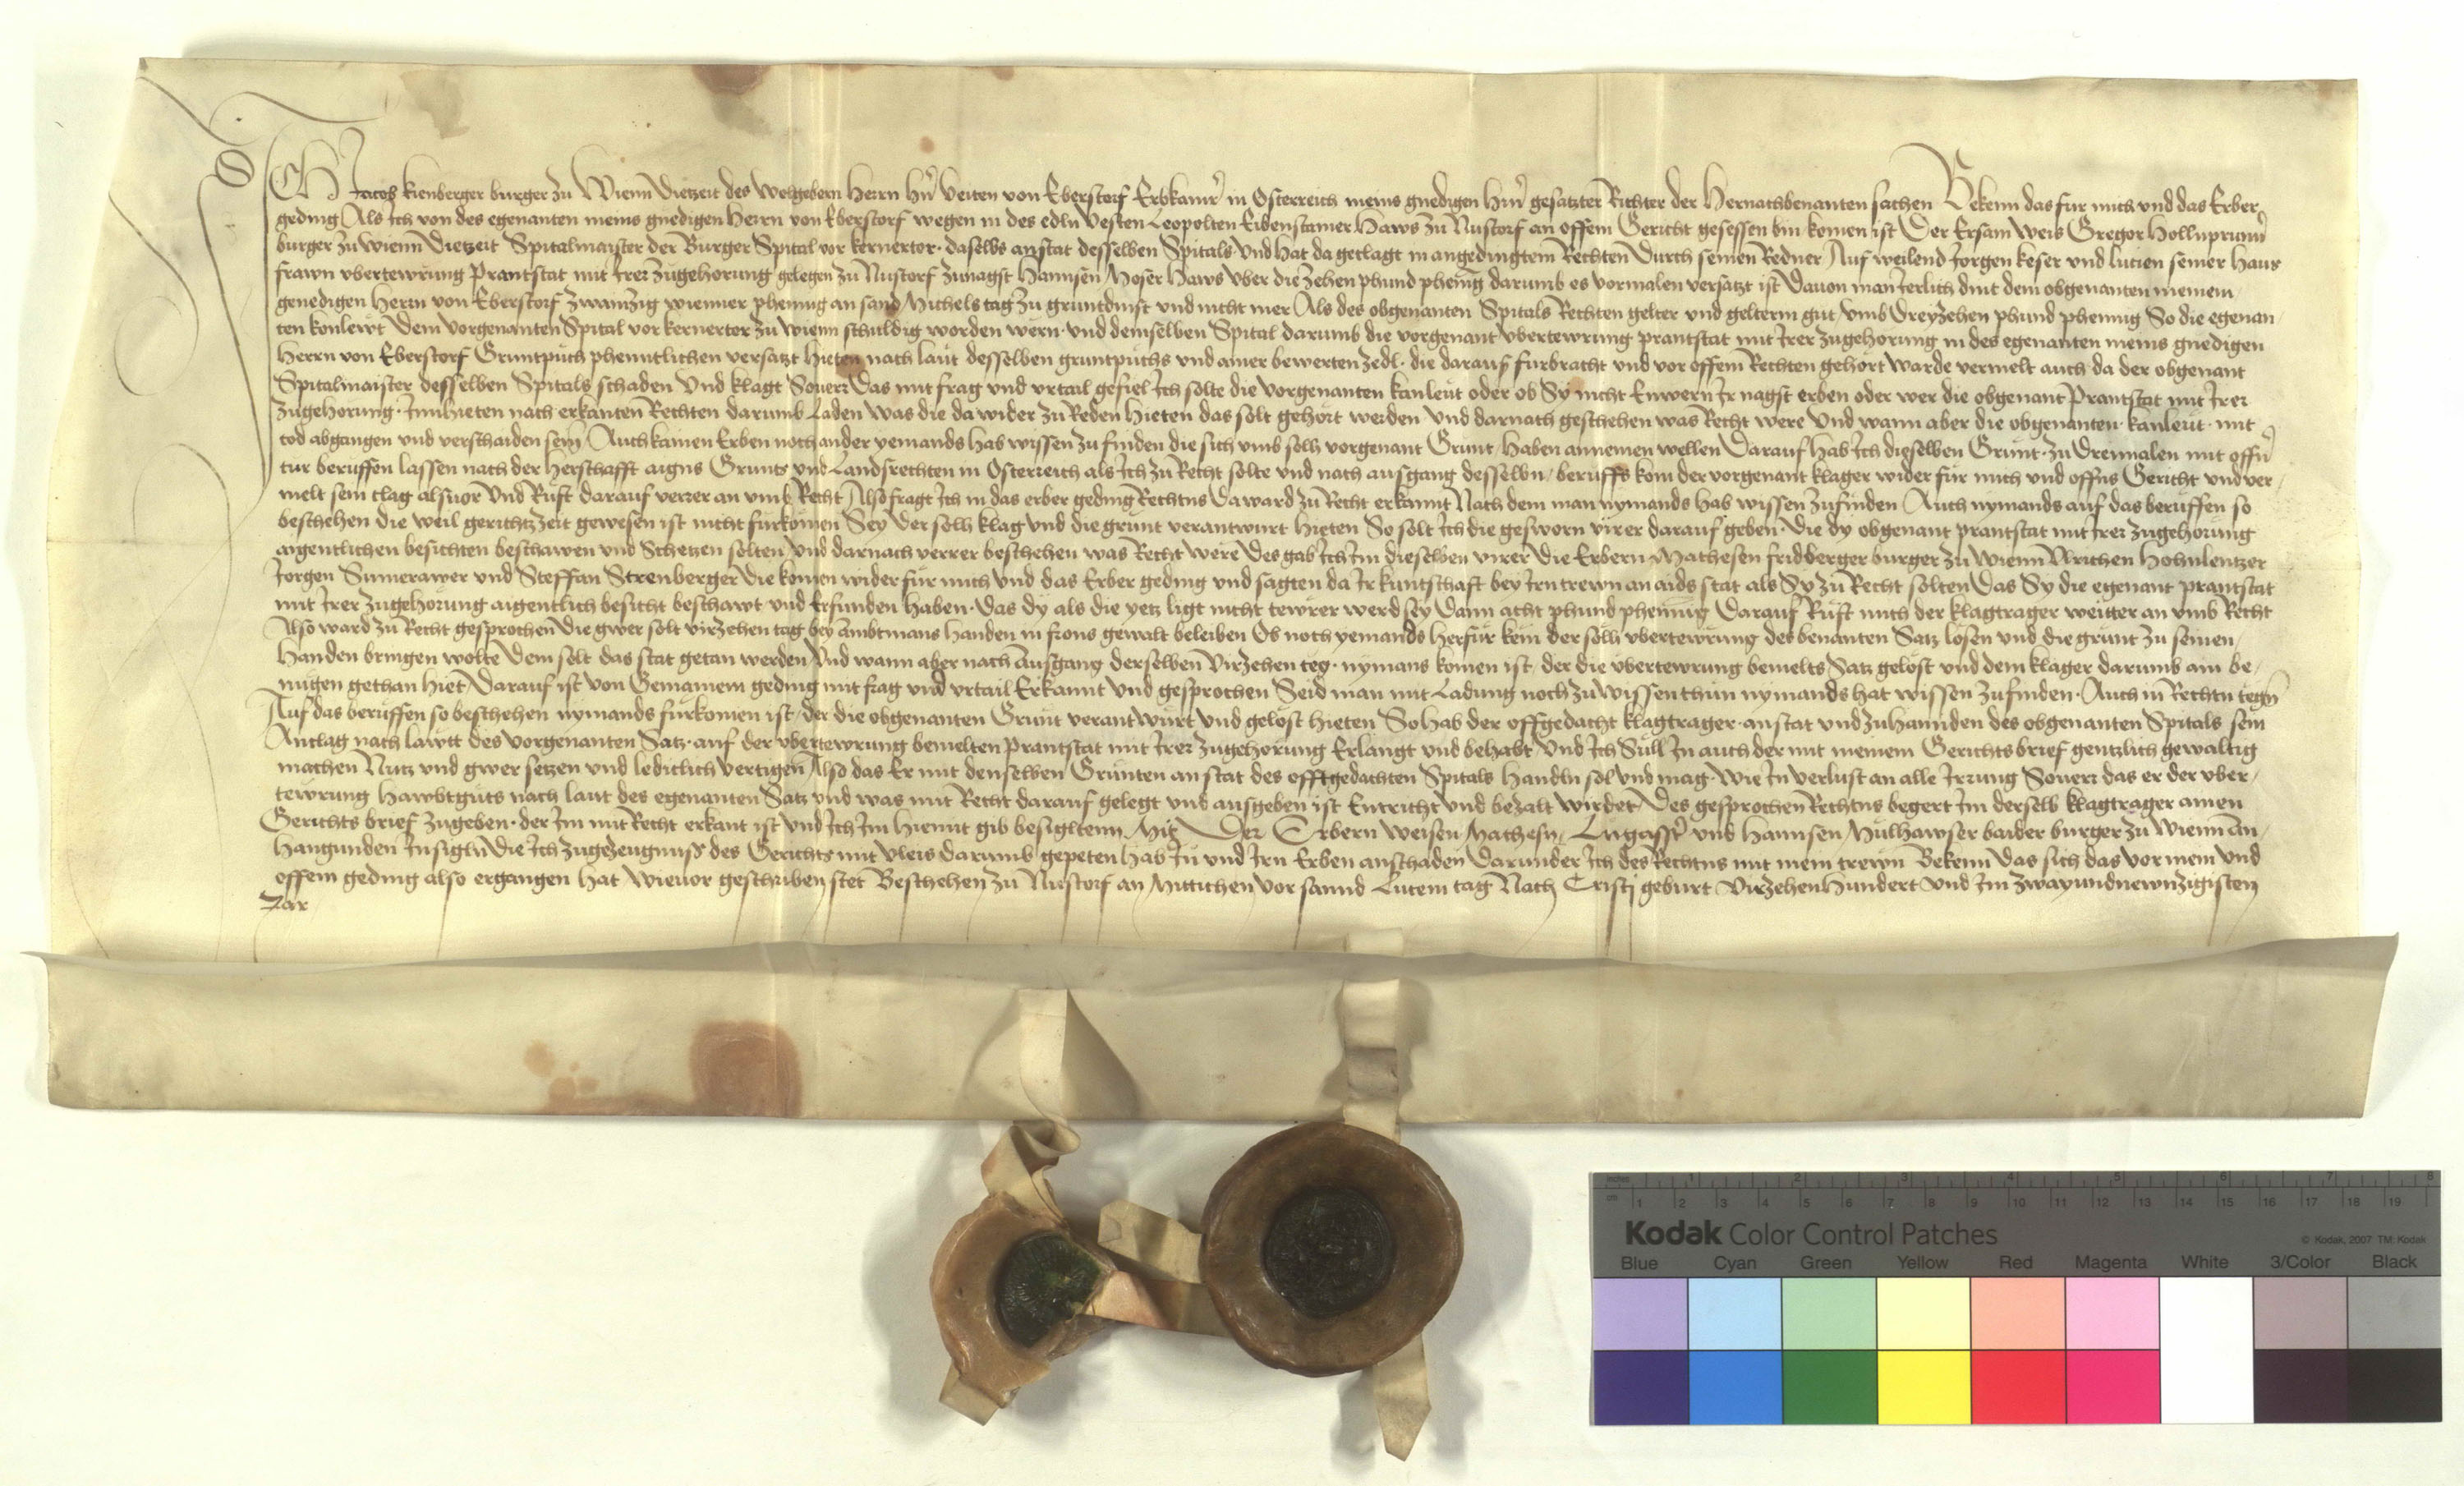 ICH Jacob kienberger burger zu Wienn Dietzeit des wolgebern Herrn hern Veiten von Eberstorf Erbkamrer in Osterreich meins gnedigen hern gesatzter Richter der Hernachbenanten sachen Bekenn das fur mich vnd das Erber
geding Als Ich von des egenanten meins gnedigen Herrn von Eberstorf wegen in des edln Vesten Leopolten Eibenstainer Haws zu Nustorf an offem Gericht gesessen bin komen ist Der Ersam weis Gregor Hollnprunner
burger zu wienn Dietzeit Spitalmaister der Burger Spital vor kernertor · daselbs anstat desselben Spitals vnd hat da geclagt in angedingtem Rechten Durch seinen Redner Auf weilend Jorgen keser vnd lucien seiner haus
frawn vbertewrung Prantstat mit Irer zugehorung gelegen zu Nustorf zunagst Hannsen Moser Haws vber die zehen phund phening darumb es vormalen versatzt ist Dauon man Ierlich dint dem obgenanten meinem
genedigen Herrn von Eberstorf zwainzig wienner phennig an sand Michels tag zu gruntdinst vnd nicht mer Als des obgenanten Spitals Rechten gelter vnd gelterin gut vmb Dreyzehen phund phennig So die egenan
ten konlewt Dem vorgenanten Spital vor kernertor zu wienn schuldig worden wern · vnd demselben Spital darumb die vorgenant vbertewrung prantstat mit Irer zugehorung in des egenanten meins gnedigen
Herrn von Eberstorf Gruntpuch phenntlichen versatzt hieten nach laut desselben gruntpuchs vnd ainer bewerten zedl · die darauf furbracht vnd vor offem Rechten gehort warde vermelt auch da der obgenant
Spitalmaister desselben Spitals schaden Vnd klagt Souerr Das mit frag vnd vrtail gefiel Ich solte die vorgenanten kanleut oder ob Sy nicht Enwern Ir nagst erben oder wer die obgenant Prantstat mit Irer
zugehorung · Innhieten nach erkanten Rechten darumb Laden was die da wider zu Reden hieten das solt gehort werden vnd darnach geschehen was Recht were Vnd wann aber die obgenanten · kanleut · mit
tod abgangen vnd verschaiden sein Auch kainen Erben noch ander yemands hab wissen zu finden die sich vmb solh vorgenant Grunt Haben annemen wellen Darauf hab Ich dieselben Grunt · zu Dreimalen mit offner
tur beruffen lassen nach der Herschafft aigns Grunts vnd Landsrechten in Osterreich als Ich zu Recht solte vnd nach ausgang desselbn beruffs kom der vorgenant klager wider fur mich vnd offens Gericht vnd ver
melt sein clag alsuor Vnd Rufft darauf verrer an vmb Recht Also fragt Ich in das erber geding Rechtns Da ward zu Recht erkannt Nach dem man nymands hab wissen zufinden Auch nymands auf das beruffen so
beschehen die weil gerichtzzeit gewesen ist nicht furkomen Sey Der solh klag vnd die grunt verantwurt hieten So solt Ich die gesworn virer darauf geben · Die dy obgenant prantstat mit Irer zugehorung
aigentlichen besichten beschawen vnd Schetzen solten vnd darnach verrer beschehen was Recht were Des gab Ich Im dieselben virer Die Erbern Mathesen fridberger burger zu wienn Vlrichen Hohnlentzer
Jorgen Sumerawer vnd Steffan Strenberger Die komen wider fur mich vnd das Erber geding vnd sagten da Ir kuntschaft bey Irn trewn an aids stat als Sy zu Recht solten Das Sy die egenant prantstat
mit Irer zugehorung aigentlich besicht beschawt vnd Erfunden haben · Das dy als die yetz ligt nicht tewrer werd sey Dann acht phund phennig Darauf Rufft mich der klagtrager weitter an vmb Recht
Also ward zu Recht gesprochen Die gwer solt virzehen tag bey Ambtmans handen in frons gewalt beleiben Ob noch yemands herfur kem der solh vbertewrung des benanten Satz losen vnd die grunt zu seinen
Handen bringen wolte Dem solt das stat getan werden Vnd wann aber nach Ausgang derselben Virzehen teg · nymans komen ist / der die vbertewrung bemelts Satz gelost vnd dem klager darumb ain be
nugen gethan hiet Darauf ist von Gemainem geding mit frag vnd vrtail Erkannt vnd gesprochen Seid man mit Ladung noch zu wissen thun nymands hat wissen zufinden · Auch in Rechten tegn
Auf das beruffen so beschehen nymands furkomen ist / der die obgenanten Grunt verantwurt vnd gelost hieten So hab der offtgedacht klagtrager · anstat vnd zuhannden des obgenanten Spitals sein
Anclag nach lawtt des vorgenanten Satz · auf der vbertewrung bemelten prantstat mit Irer zugehorung Erlangt vnd behabt Vnd Ich Sull In auch der mit meinem Gerichtsbrief gentzlich gewaltig
machen Nutz vnd gwer setzen vnd lediclich vertigen Also das Er mit denselben Grunten anstat des offtgedachten Spitals handln sol vnd mag · Wie In verlust an alle Irrung Souerr das er der vber
tewrung hawbtguts nach laut des egenanten Satz vnd was mit Recht darauf gelegt vnd ausgeben ist Entricht vnd bezalt wirdet Des gesprochen Rechtns begert Im derselb klagtrager ainen
Gerichts brief zugeben · der Im mit Recht erkant ist vnd Ich Im hiemit gib besigltenn Mit Der Erbern weisen Mathesn vnd Hannsen Mulhawser baider burger zu Wienn An
hangunden Insigln Die Ich zugezeugnuss des Gerichts mit vleis darumb gepeten hab In vnd Irn Erben anschaden Darunder Ich des Rechtns mit mein trewn Bekenn Das sich das vor mein vnd
offem geding also ergangen hat wieuor geschriben stet Beschehen zu Nustorf an Mittichen vor sannd Lucein tag Nach Cristi geburt Virzehenhundert vnd Im zwayundnewnzigisten
Jar
inches 1 2 3 4 5 6 7 8
cm 1 2 3 4 5 6 7 8 9 10 11 12 13 14 15 16 17 18 19
Kodak Color Control Patches © Kodak, 2007 TM: Kodak
Blue Cyan Green Yellow Red Magenta White 3/Color Black